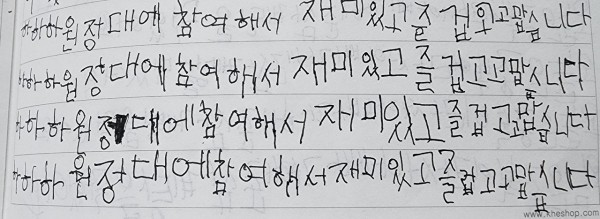 하하하원정대에 참여해서 재미있고 즐겁고고맙습니다
하하하원정대에 참여해서 재미있고 즐겁고고맙습니다
하하하원정대에참여해서 재미있고 즐겁고고맙습니다
하하하원정대에참여해서재미있고즐겁고고맙습니다
www.kheshop.com